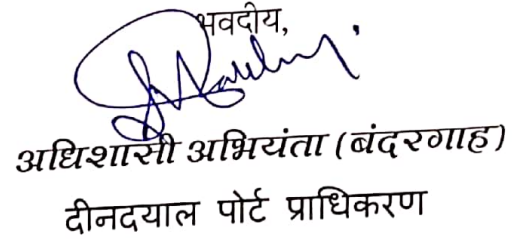 भवदीय,
अधिशासी अभियंता (बंदरगाह)
दीनदयाल पोर्ट प्राधिकरण